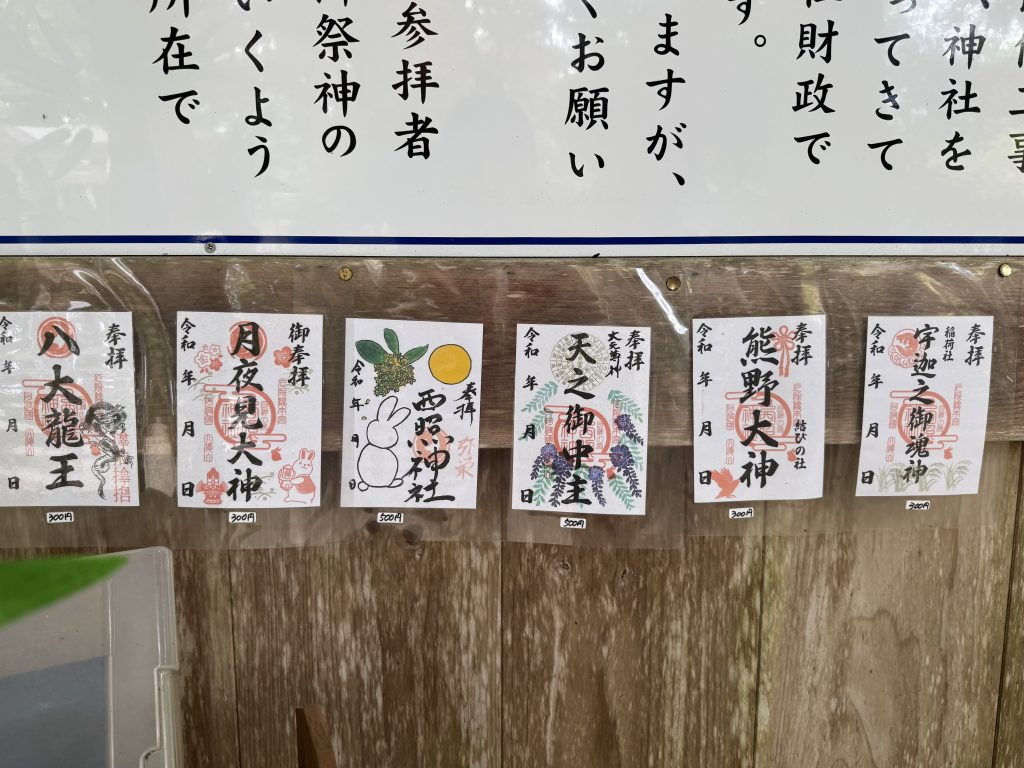 事
神社を
ってきて
財政で
す。
ますが、
くお願い
参拝者
祭神の
いくよう
所在で
奉拝
稲荷社
宇迦之御魂神
令和 年 月 日
300円
奉拝
結びの社
熊野大神
令和 年 月 日
300円
奉拝
天之御中主
令和 年 月 日
500円
奉拝
西照神社
令和 年 月 日
500円
御奉拝
月夜見大神
令和 年 月 日
300円
奉拝
八大龍王
令和 年 月 日
300円